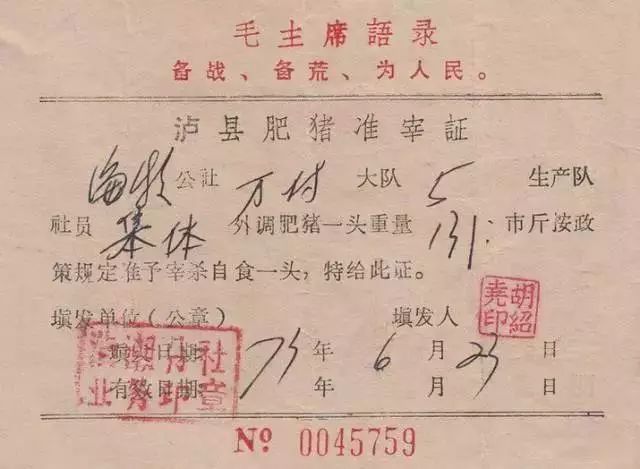 毛主席語录
备战、备荒、为人民。
泸县肥猪准宰証
海潮公社 万村 大队 5 生产队
社员 集体 外调肥猪一头重量 131 市斤按政
策规定准予宰杀自食一头，特给此证。
填发单位(公章) 填发人
胡紹尧印
填发日期: 75年6月23日
有效日期: 年 月 日
业务印章
№ 0045759